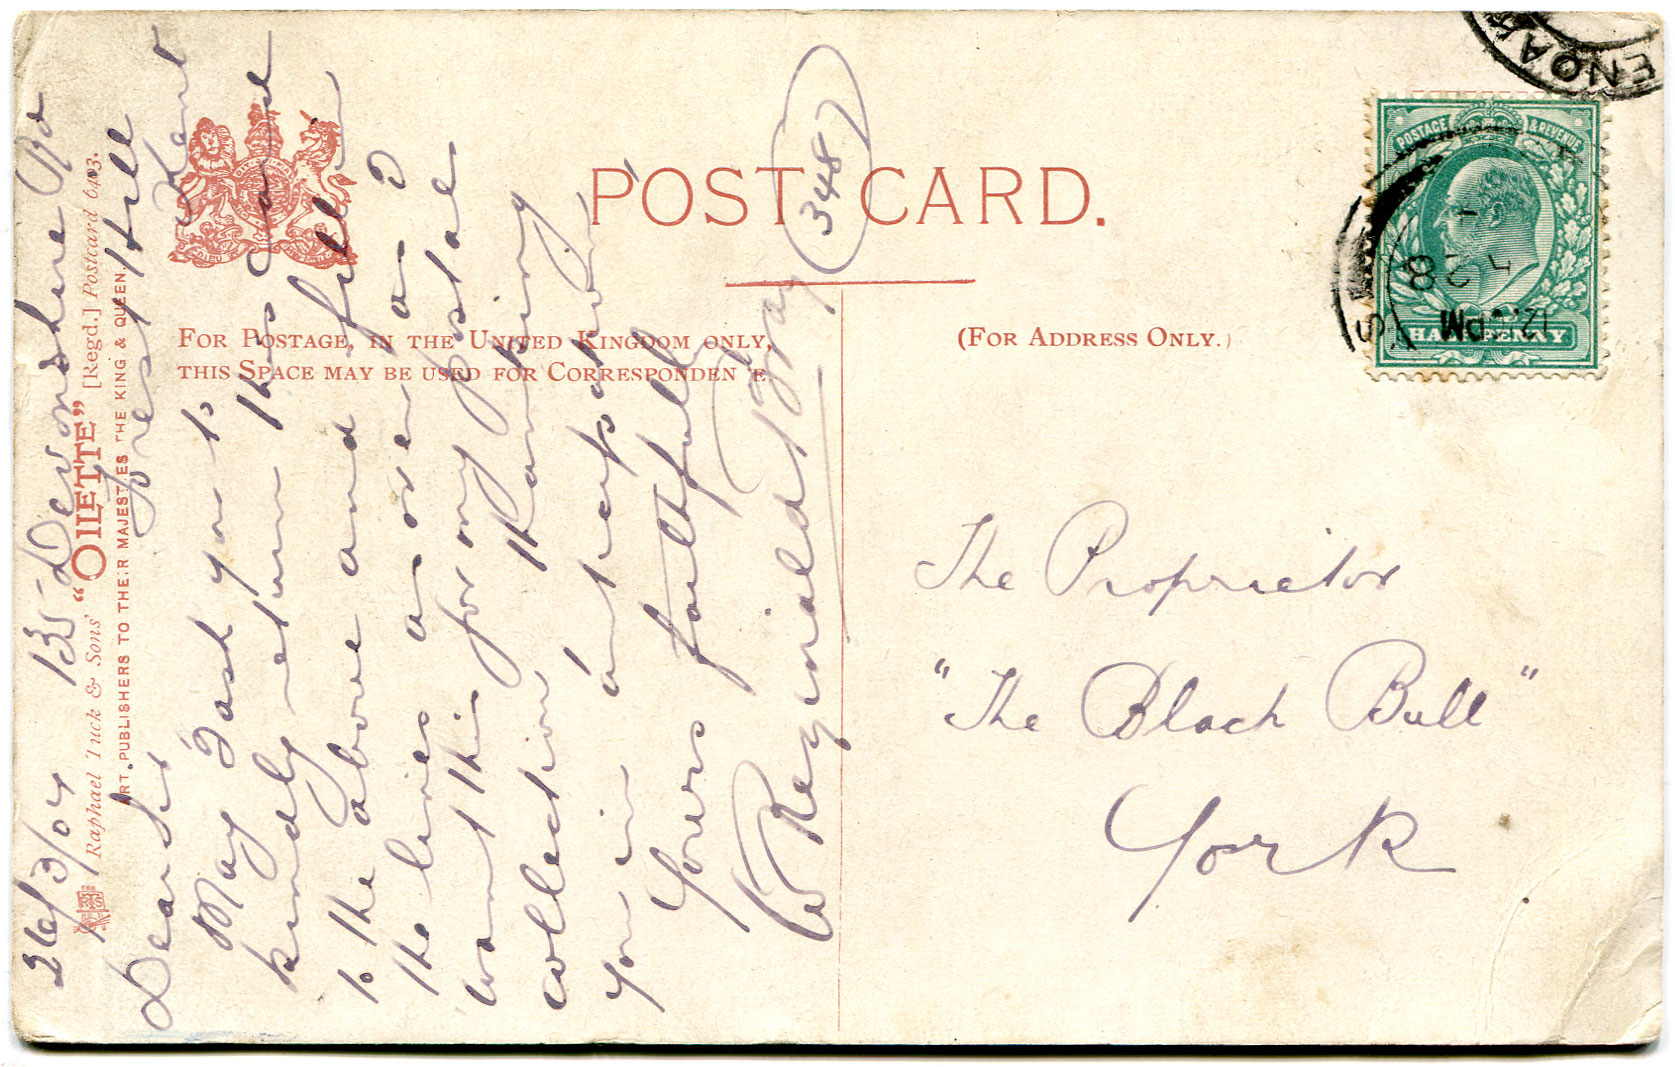 POST CARD.
348
FOR POSTAGE, IN THE UNITED KINGDOM ONLY,
THIS SPACE MAY BE USED FOR CORRESPONDEN E.
(FOR ADDRESS ONLY.)
POSTAGE & REVENUE
HALFPENNY
12. PM
28
S
ENOA
Raphael Tuck & Sons' "OILETTE" [Regd.] Postcard 6403.
ART PUBLISHERS TO THEIR MAJESTIES THE KING & QUEEN.
26/3/04 135 Devonshire Rd
Forest Hill
Kent
Dear Sir
May I ask you to
kindly return this card
to the above and fill in
the lines a-over, as I
want this for my postal
collection thanking
you in anticipation
Yours faithfully
W Reginald Bray
The Proprietor
"The Black Bull"
York